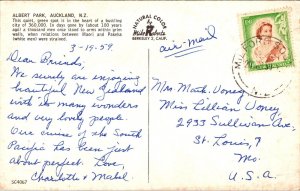 ALBERT PARK, AUCKLAND, N.Z.
This quiet, green spot is in the heart of a bustling
city of 360,000. In days gone by (about 100 years
ago) a thousand men once stood to arms within grim
walls, when relations between Maori and Pakeha
(white men) were strained.
NATURAL COLOR
Mike Roberts
BERKELEY 2, CALIF.
3-19-59
air-mail
Dear Friends,
We surely are enjoying
beautiful New Zealand
with its many wonders
and very lovely people.
Our cruise of the South
Pacific has been just
about perfect. Love,
Charlotte & Mabel
Mr. Math. Voney
Miss Lillian Voney
2933 Sullivan Ave,
St. Louis, 7
Mo.
U.S.A.
SC4067